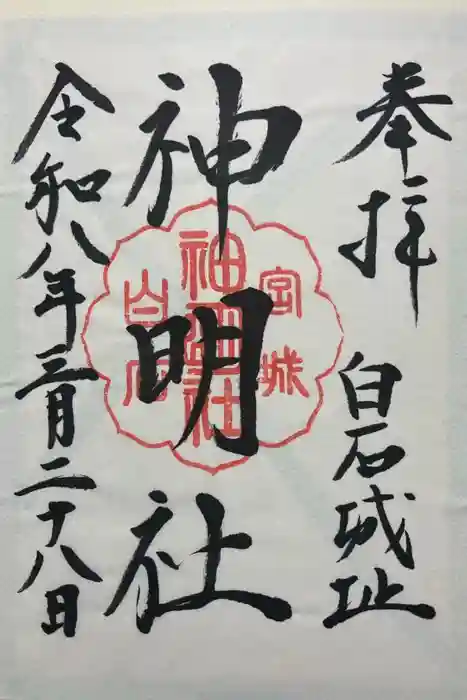 奉拝
白石城址
神明社
宮城
神明社
白石
令和八年三月二十八日